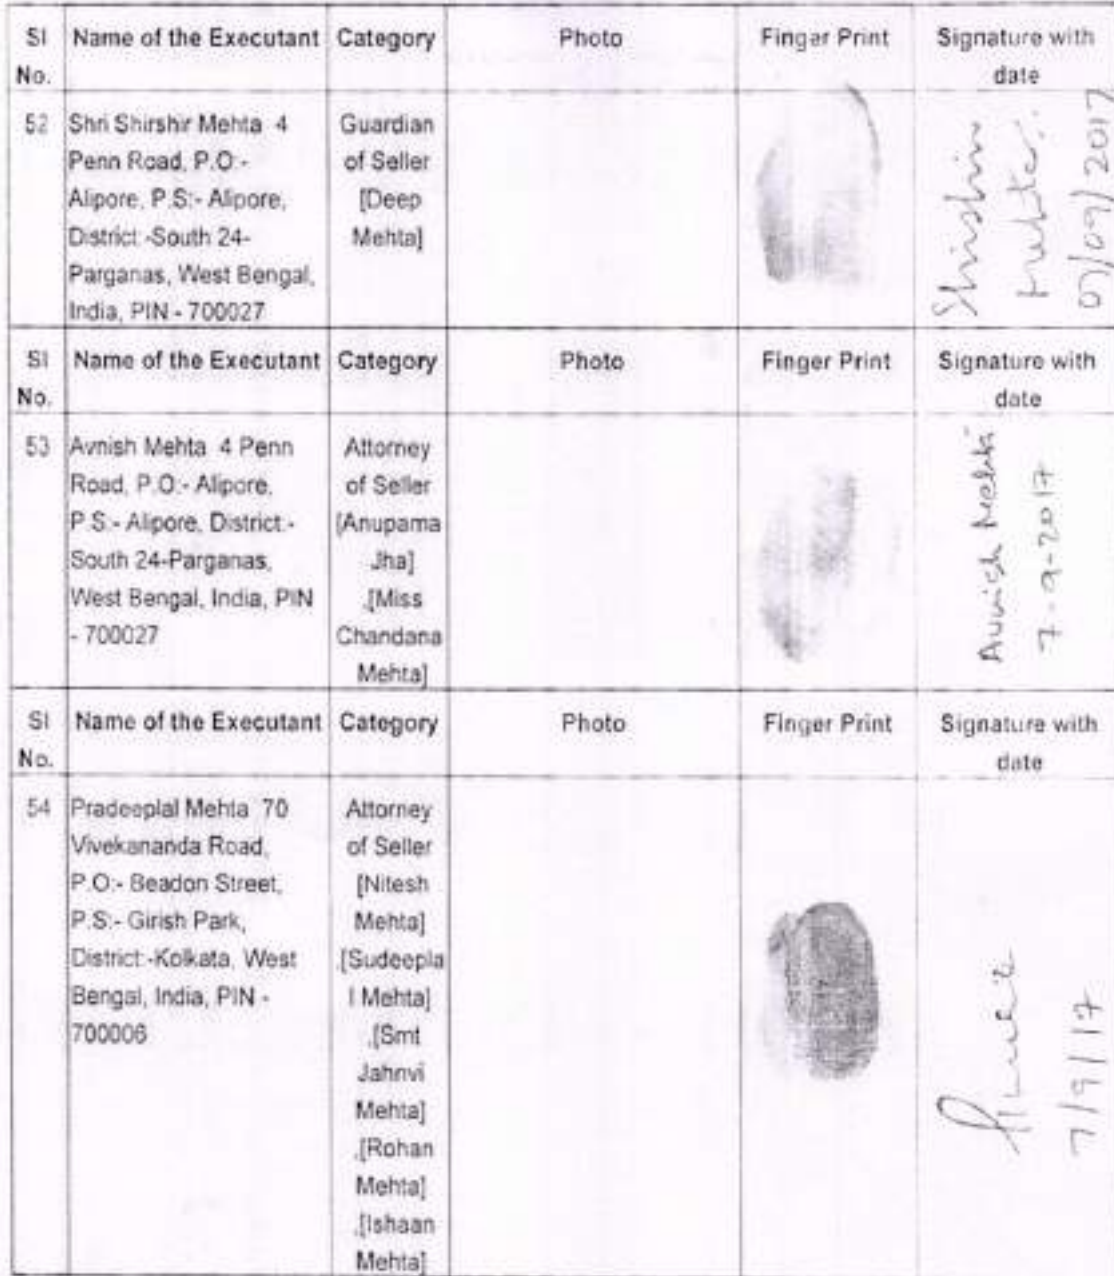 Sl No. Name of the Executant Category Photo Finger Print Signature with date
52 Shri Shirshir Mehta 4 Penn Road, P.O:- Alipore, P.S:- Alipore, District:-South 24-Parganas, West Bengal, India, PIN - 700027
Guardian of Seller [Deep Mehta]
Shirshir Mehta
07/09/2017
Sl No. Name of the Executant Category Photo Finger Print Signature with date
53 Avnish Mehta 4 Penn Road, P.O:- Alipore, P.S:- Alipore, District:-South 24-Parganas, West Bengal, India, PIN - 700027
Attorney of Seller [Anupama Jha] ,[Miss Chandana Mehta]
Avnish Mehta
7-9-2017
Sl No. Name of the Executant Category Photo Finger Print Signature with date
54 Pradeeplal Mehta 70 Vivekananda Road, P.O:- Beadon Street, P.S:- Girish Park, District:-Kolkata, West Bengal, India, PIN - 700006
Attorney of Seller [Nitesh Mehta] ,[Sudeeplal Mehta] ,[Smt Jahnvi Mehta] ,[Rohan Mehta] ,[Ishaan Mehta]
7/9/17